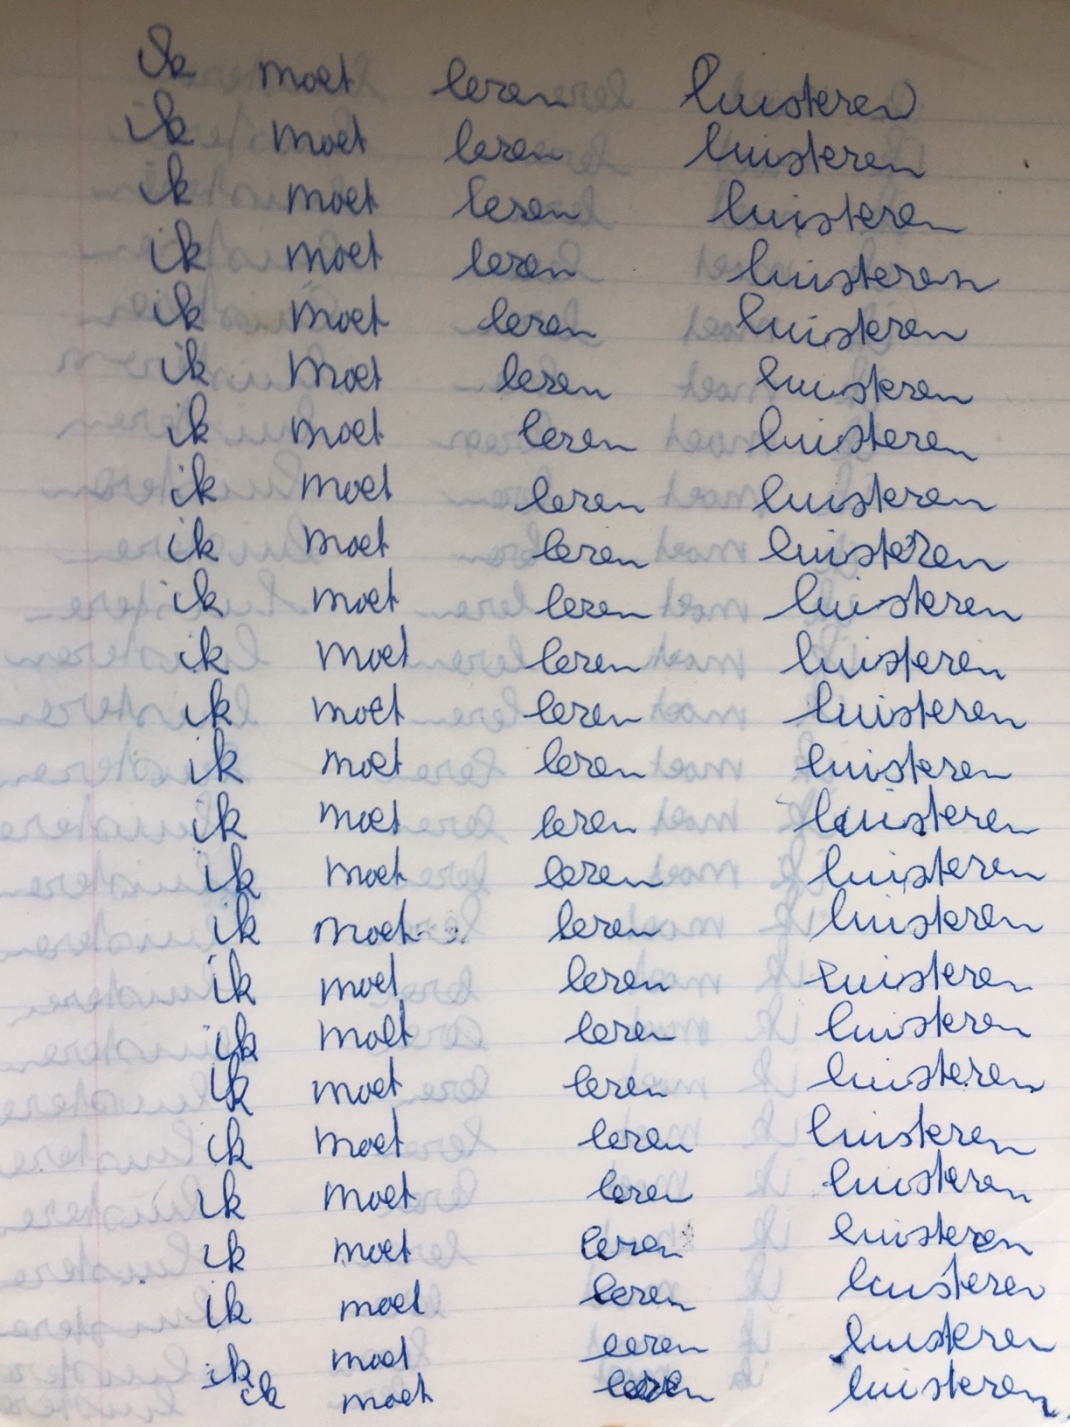 ik moet leren luisteren
ik moet leren luisteren
ik moet leren luisteren
ik moet leren luisteren
ik moet leren luisteren
ik moet leren luisteren
ik moet leren luisteren
ik moet leren luisteren
ik moet leren luisteren
ik moet leren luisteren
ik moet leren luisteren
ik moet leren luisteren
ik moet leren luisteren
ik moet leren luisteren
ik moet leren luisteren
ik moet leren luisteren
ik moet leren luisteren
ik moet leren luisteren
ik moet leren luisteren
ik moet leren luisteren
ik moet leren luisteren
ik moet leren luisteren
ik moet leren luisteren
ik moet leren luisteren
ik moet leren luisteren